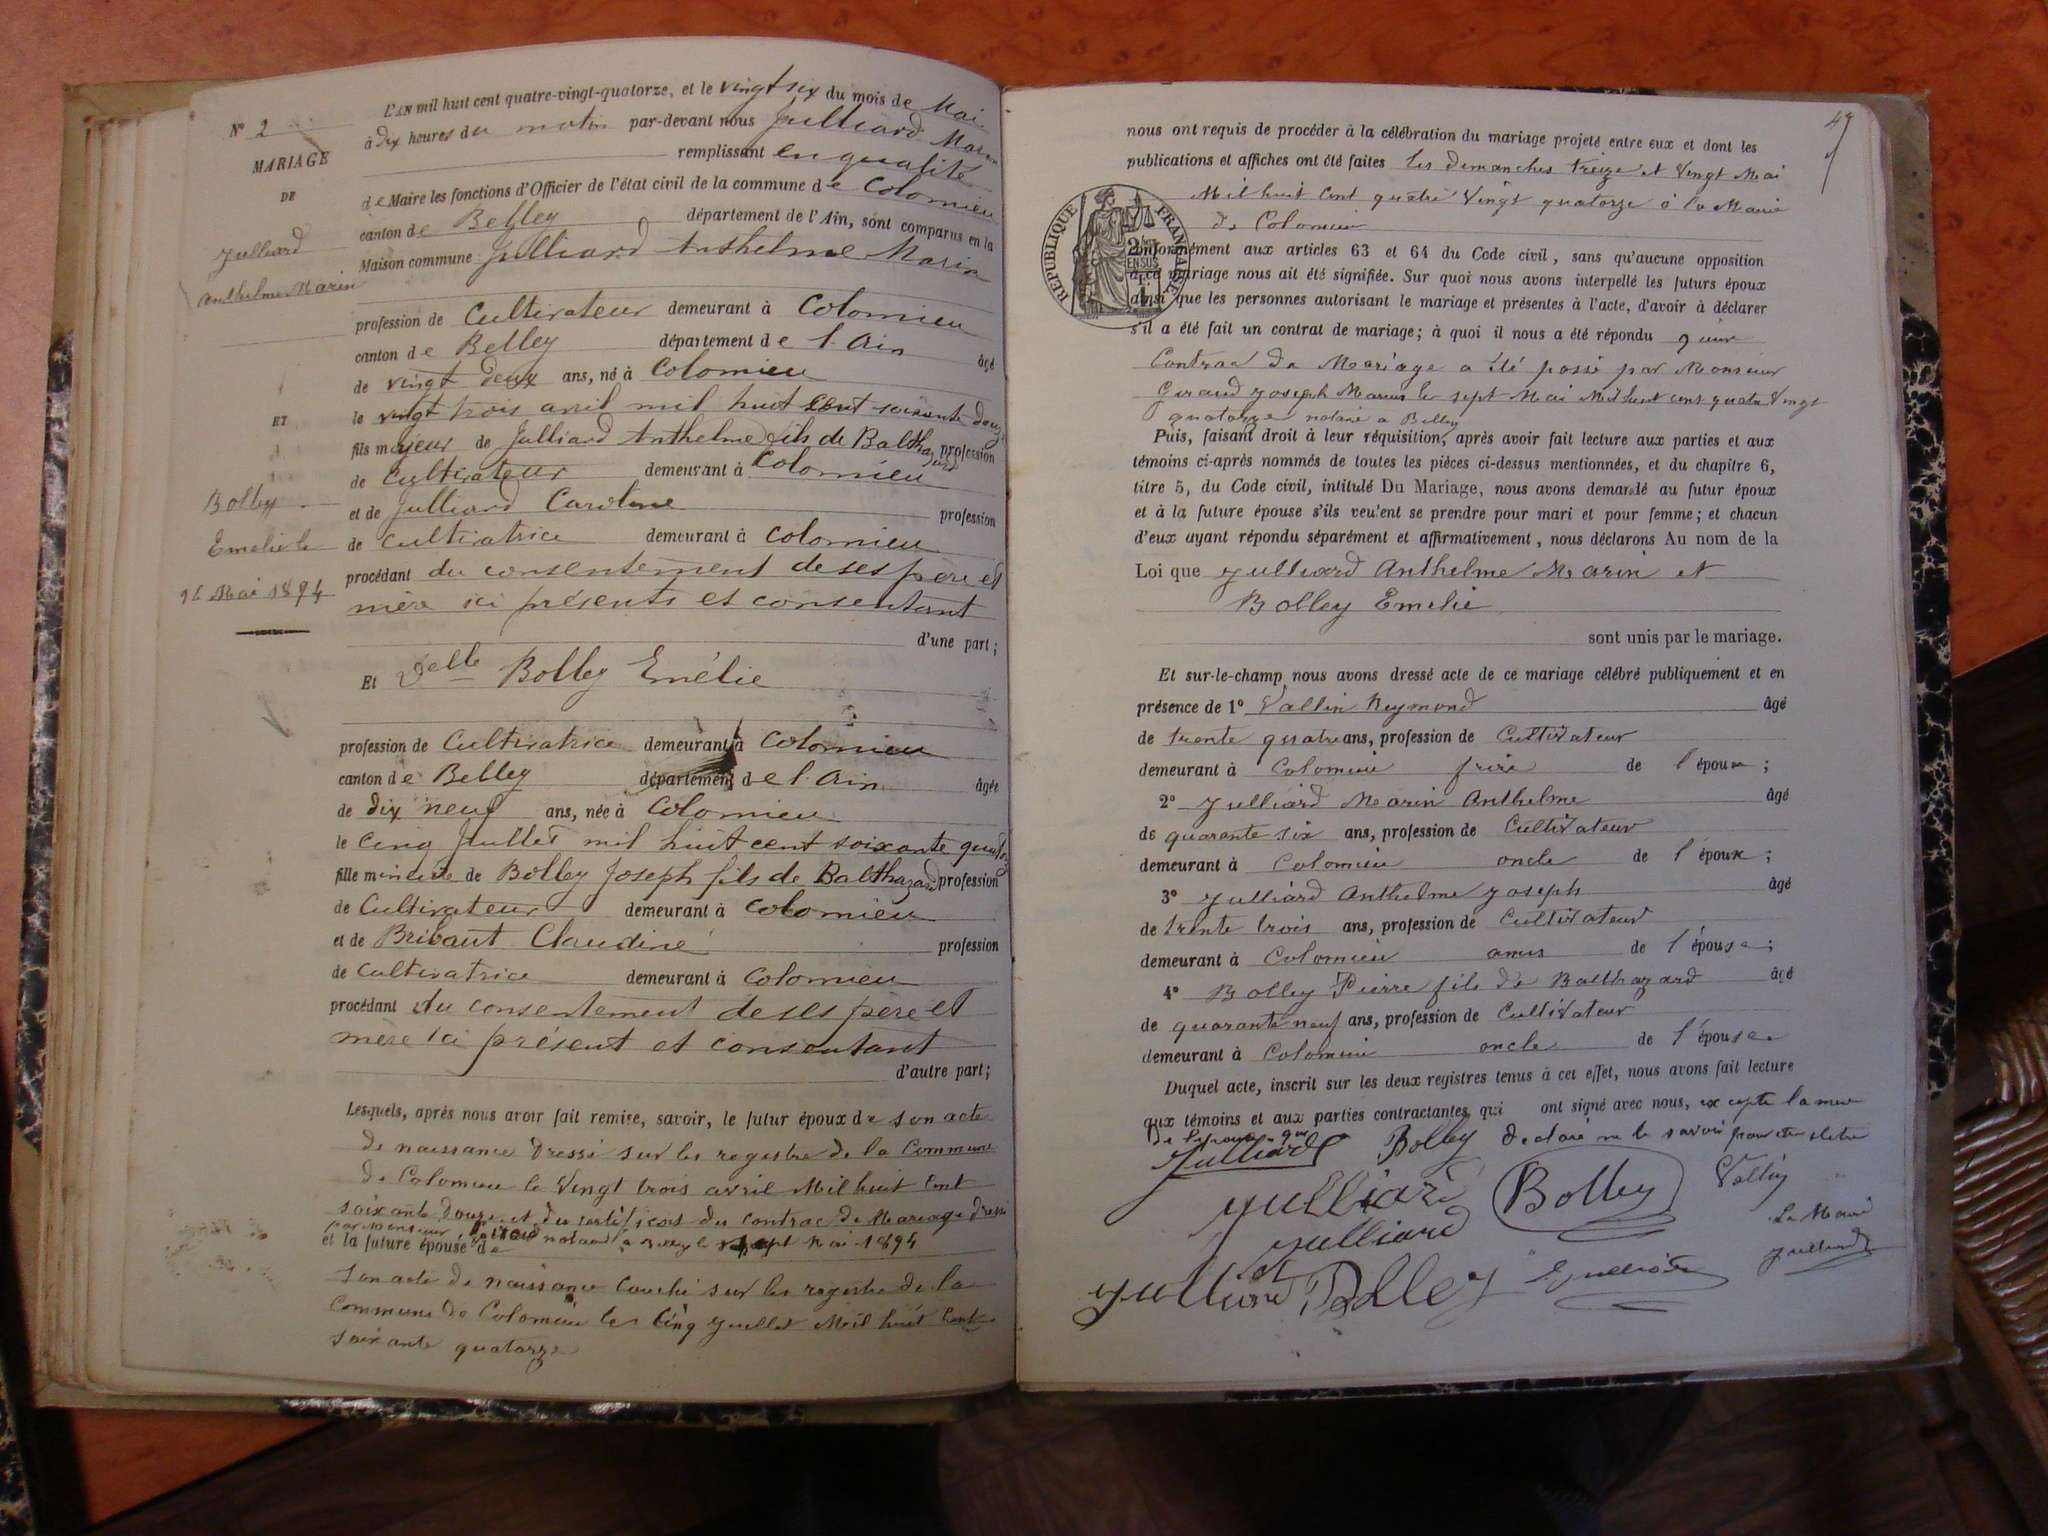 Nº 2
MARIAGE
DE
Julliard
Anthelme Marin
ET
Bolley
Emelie le
26 Mai 1894
L'AN mil huit cent quatre-vingt-quatorze, et le vingt six du mois de Mai
à dix heures du matin par-devant nous Julliard Marin
remplissant en qualité
de Maire les fonctions d'Officier de l'état civil de la commune de Colomieu
canton de Belley département de l'Ain, sont comparus en la
Maison commune Julliard Anthelme Marin
profession de Cultivateur demeurant à Colomieu
canton de Belley département de l'Ain âgé
de vingt deux ans, né à Colomieu
le vingt trois avril mil huit cent soixante douze
fils majeur de Julliard Anthelme fils de Balthazard profession
de Cultivateur demeurant à Colomieu
et de Julliard Caroline profession
de cultivatrice demeurant à Colomieu
procédant du consentement de ses père et
mère ici présents et consentant
d'une part;
Et Delle Bolley Emélie
profession de Cultivatrice demeurant à Colomieu
canton de Belley département de l'Ain âgée
de dix neuf ans, née à Colomieu
le cinq Juillet mil huit cent soixante quatorze
fille mineure de Bolley Joseph fils de Balthazard profession
de Cultivateur demeurant à Colomieu
et de Bribaut Claudine profession
de Cultivatrice demeurant à Colomieu
procédant du consentement de ses père et
mère ici présent et consentant
d'autre part;
Lesquels, après nous avoir fait remise, savoir, le futur époux de son acte
de naissance dressé sur les registre de la Commune
de Colomieu le Vingt trois avril Mil huit Cent
soixante douze et du certificat du contrac de Mariage dressé
par Monsieur Giraud notaire à Belley le sept Mai 1894
et la future épouse de
son acte de naissance couché sur les registre de la
Commune de Colomieu le Cinq Juillet Mil huit Cent
soixante quatorze
49
nous ont requis de procéder à la célébration du mariage projeté entre eux et dont les
publications et affiches ont été faites les demanches treize et Vingt Mai
Mil huit Cent quatre Vingt quatorze à la Mairie
de Colomieu
RÉPUBLIQUE FRANÇAISE
conformément aux articles 63 et 64 du Code civil, sans qu'aucune opposition
à ce mariage nous ait été signifiée. Sur quoi nous avons interpellé les futurs époux
ainsi que les personnes autorisant le mariage et présentes à l'acte, d'avoir à déclarer
s'il a été fait un contrat de mariage; à quoi il nous a été répondu quun
Contrac de Mariage a été passé par Monsieur
Giraud Joseph Marius le sept Mai Mil huit cent quatre Vingt
quatorze notaire a Belley
Puis, faisant droit à leur réquisition, après avoir fait lecture aux parties et aux
témoins ci-après nommés de toutes les pièces ci-dessus mentionnées, et du chapitre 6,
titre 5, du Code civil, intitulé Du Mariage, nous avons demandé au futur époux
et à la future épouse s'ils veulent se prendre pour mari et pour femme; et chacun
d'eux ayant répondu séparément et affirmativement, nous déclarons Au nom de la
Loi que Julliard Anthelme Marin et
Bolley Emelie
sont unis par le mariage.
Et sur-le-champ nous avons dressé acte de ce mariage célébré publiquement et en
présence de 1º Vallin Reymond âgé
de trente quatre ans, profession de Cultivateur
demeurant à Colomieu frère de l'époux;
2º Julliard Marin Anthelme âgé
de quarante six ans, profession de Cultivateur
demeurant à Colomieu oncle de l'époux;
3º Julliard Anthelme Joseph âgé
de trente trois ans, profession de Cultivateur
demeurant à Colomieu amis de l'épouse;
4º Bolley Pierre fils de Balthazard âgé
de quarante neuf ans, profession de Cultivateur
demeurant à Colomieu oncle de l'épouse
Duquel acte, inscrit sur les deux registres tenus à cet effet, nous avons fait lecture
aux témoins et aux parties contractantes qui ont signé avec nous, excepte la mere
de l'épouse qui declaré ne le savoir
Julliard Bolley
Julliard Bolley Vallin
Julliard
Le Maire
Julliard
Julliard Bolley Julliard